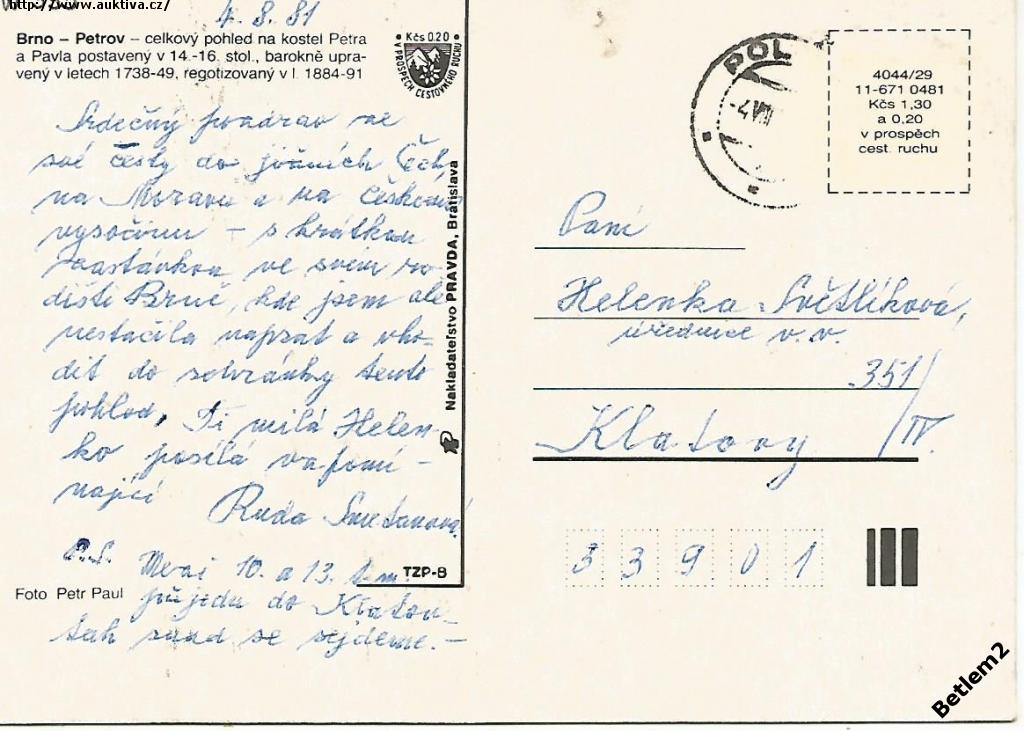 http://www.auktiva.cz/
4. 8. 81
Brno – Petrov – celkový pohled na kostel Petra
a Pavla postavený v 14.-16. stol., barokně upra-
vený v letech 1738-49, regotizovaný v l. 1884-91
Kčs 0.20
V PROSPĚCH CESTOVNÉHO RUCHU
Srdečný pozdrav ze
své cesty do jižních Čech,
na Moravu a na Českomo
vysočinu – s krátkou
zastávkou ve svém ro-
dišti Brně, kde jsem ale
nestačila napsat a vho-
dit do schránky tento
pohled, Ti milá Helen-
ko posílá vzpomí-
nající Ruda Smetanová
P.S. Mezi 10. a 13. t.m.
přijedu do Klatov-
tak snad se sejdeme. –
Foto Petr Paul
TZP-8
Nakladateľstvo PRAVDA, Bratislava
POL
4044/29
11-671 0481
Kčs 1,30
a 0,20
v prospěch
cest. ruchu
Paní
Helenka Světlíková,
úřednice v. v.
351/
Klatovy /IV.
3 3 9 0 1
Betlem2